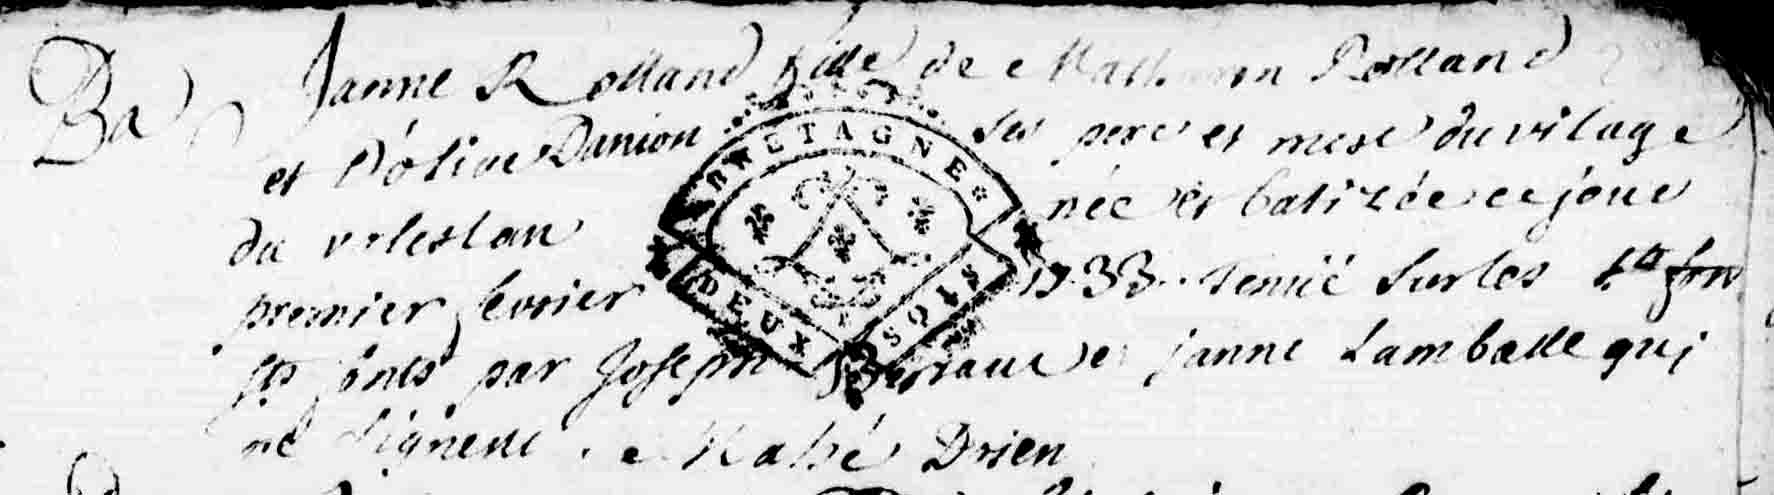 Ba
Janne Rolland fille de Mathurin Rolland
et d'olive Danion ses pere et mere du vilage
BRETAGNE
du vrlestan née et batizée ce jour
premier fevrier 1733. tenüe sur les sts fon
DEUX SOLS
sts fonts par Joseph et janne Lamballe qui
ne signent. Mahé Drien